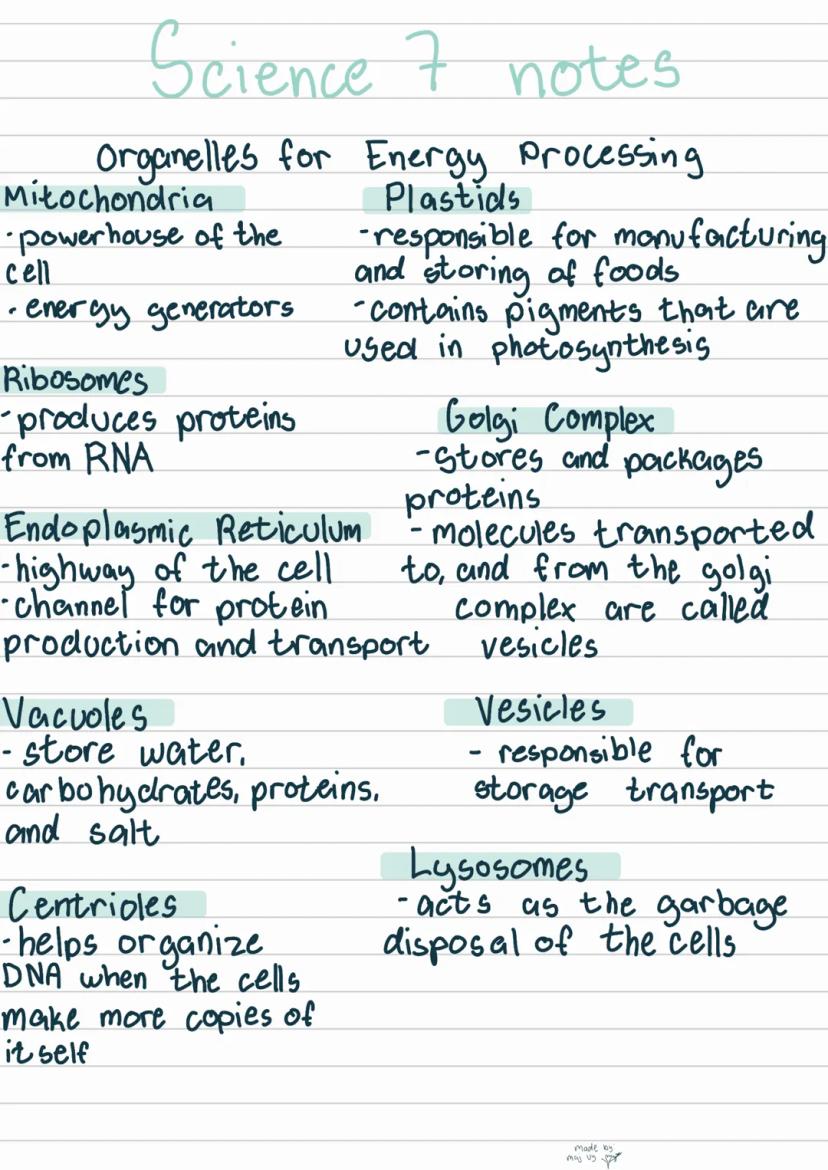 Science 7 notes
Organelles for Energy Processing
Mitochondria
·powerhouse of the
cell
·energy generators
Ribosomes
·produces proteins
from RNA
Endoplasmic Reticulum
·highway of the cell
·channel for protein
production and transport
Vacuoles
- store water,
carbohydrates, proteins,
and salt
Centrioles
·helps organize
DNA when the cells
make more copies of
itself
Plastids
-responsible for manufacturing
and storing of foods
-contains pigments that are
used in photosynthesis
Golgi Complex
-stores and packages
proteins
- molecules transported
to, and from the golgi
complex are called
vesicles
Vesicles
- responsible for
storage transport
Lysosomes
-acts as the garbage
disposal of the cells
made by